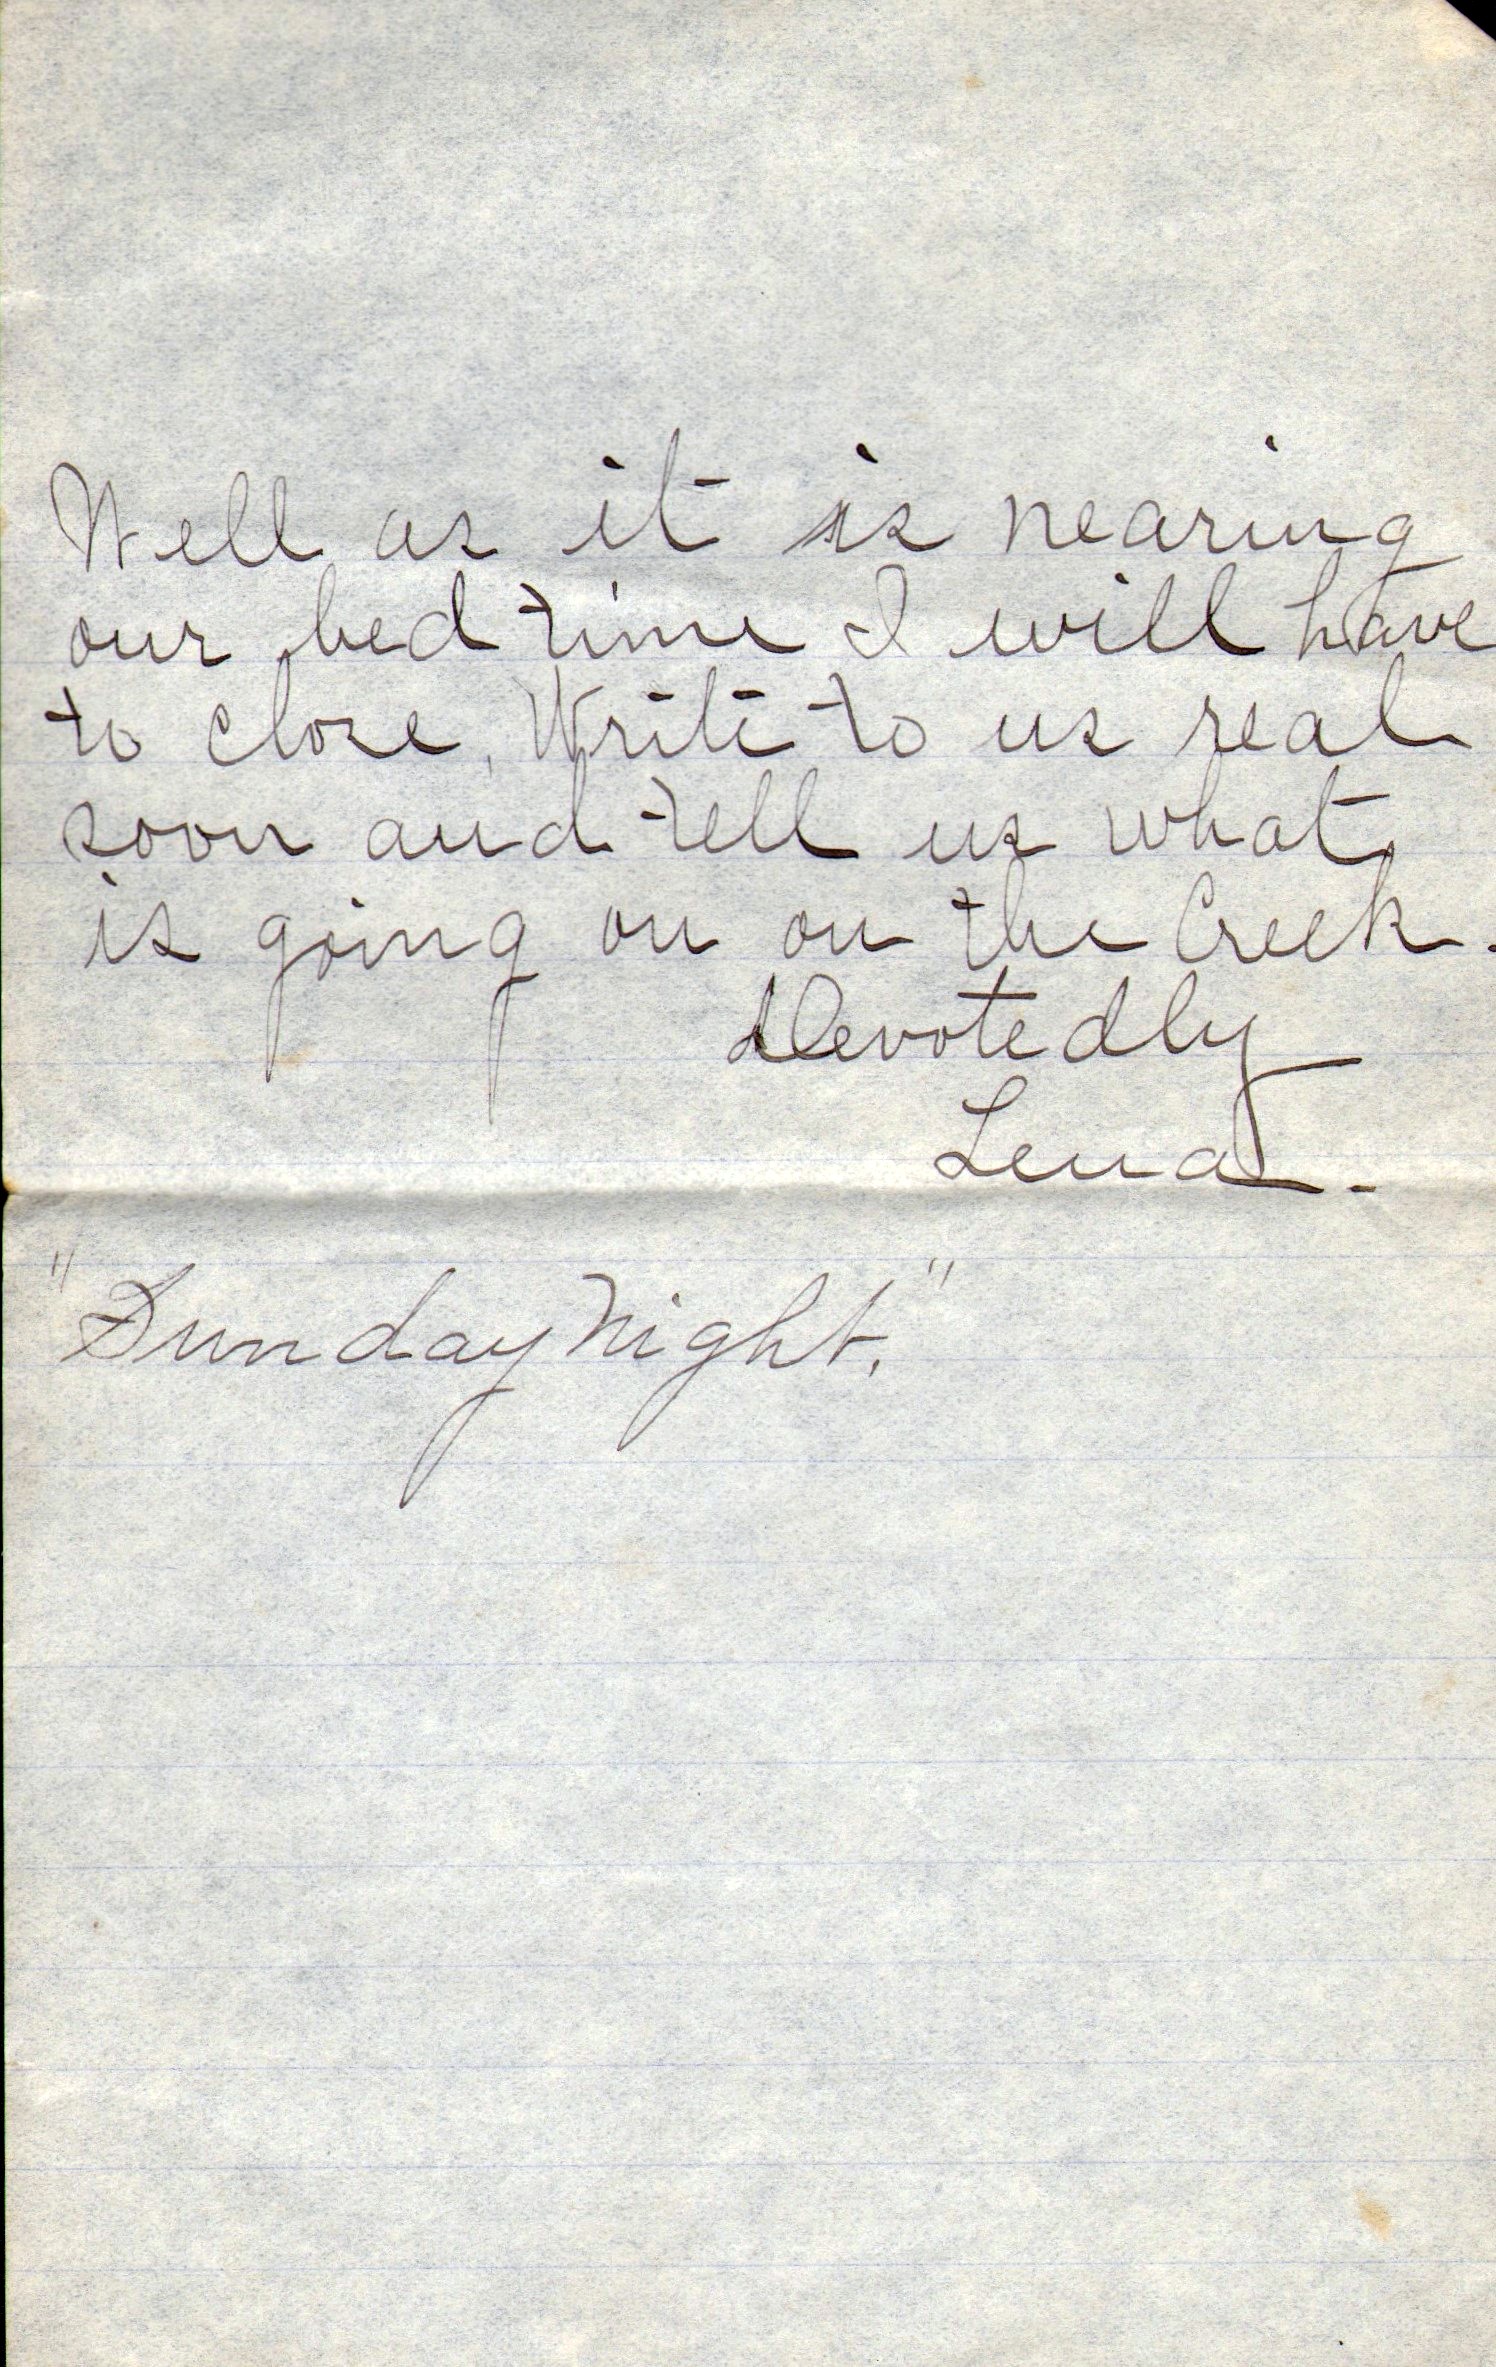 Well as it is nearing
our bed time I will have
to close. Write to us real
soon and tell us what
is going on on the Creek.
Devotedly
Lena.
"Sunday Night."